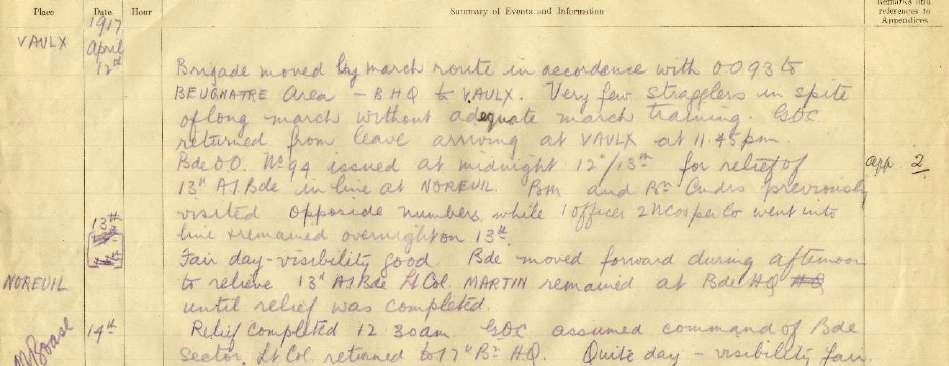 Place Date Hour Summary of Events and Information Remarks and references to Appendices
1917
VAULX April
12th
Brigade moved by march route in accordence with OO93 to
BEUGNATRE Area - BHQ to VAULX. Very few stragglers in spite
of long march without adequate march training. GOC
returned from leave arriving at VAULX at 11.45pm.
Bde OO. No 94 issued at midnight 12th/13th for relief of app 2
13th AI Bde in line at NOREUIL. BM and Bn Cmdrs previously
visited opposide numbers while 1 officer 2 NCOs per Co went into
13th line & remained overnight on 13th.
Fair day - visibility good. Bde moved forward during afternoon
NOREUIL to relieve 13th AI Bde Lt Col. MARTIN remained at Bde HQ HQ
until relief was completed.
14th Relief completed 12.30am. GOC assumed command of Bde
Sector. Lt Col. returned to 17th Bn HQ. Quite day - visibility fair.